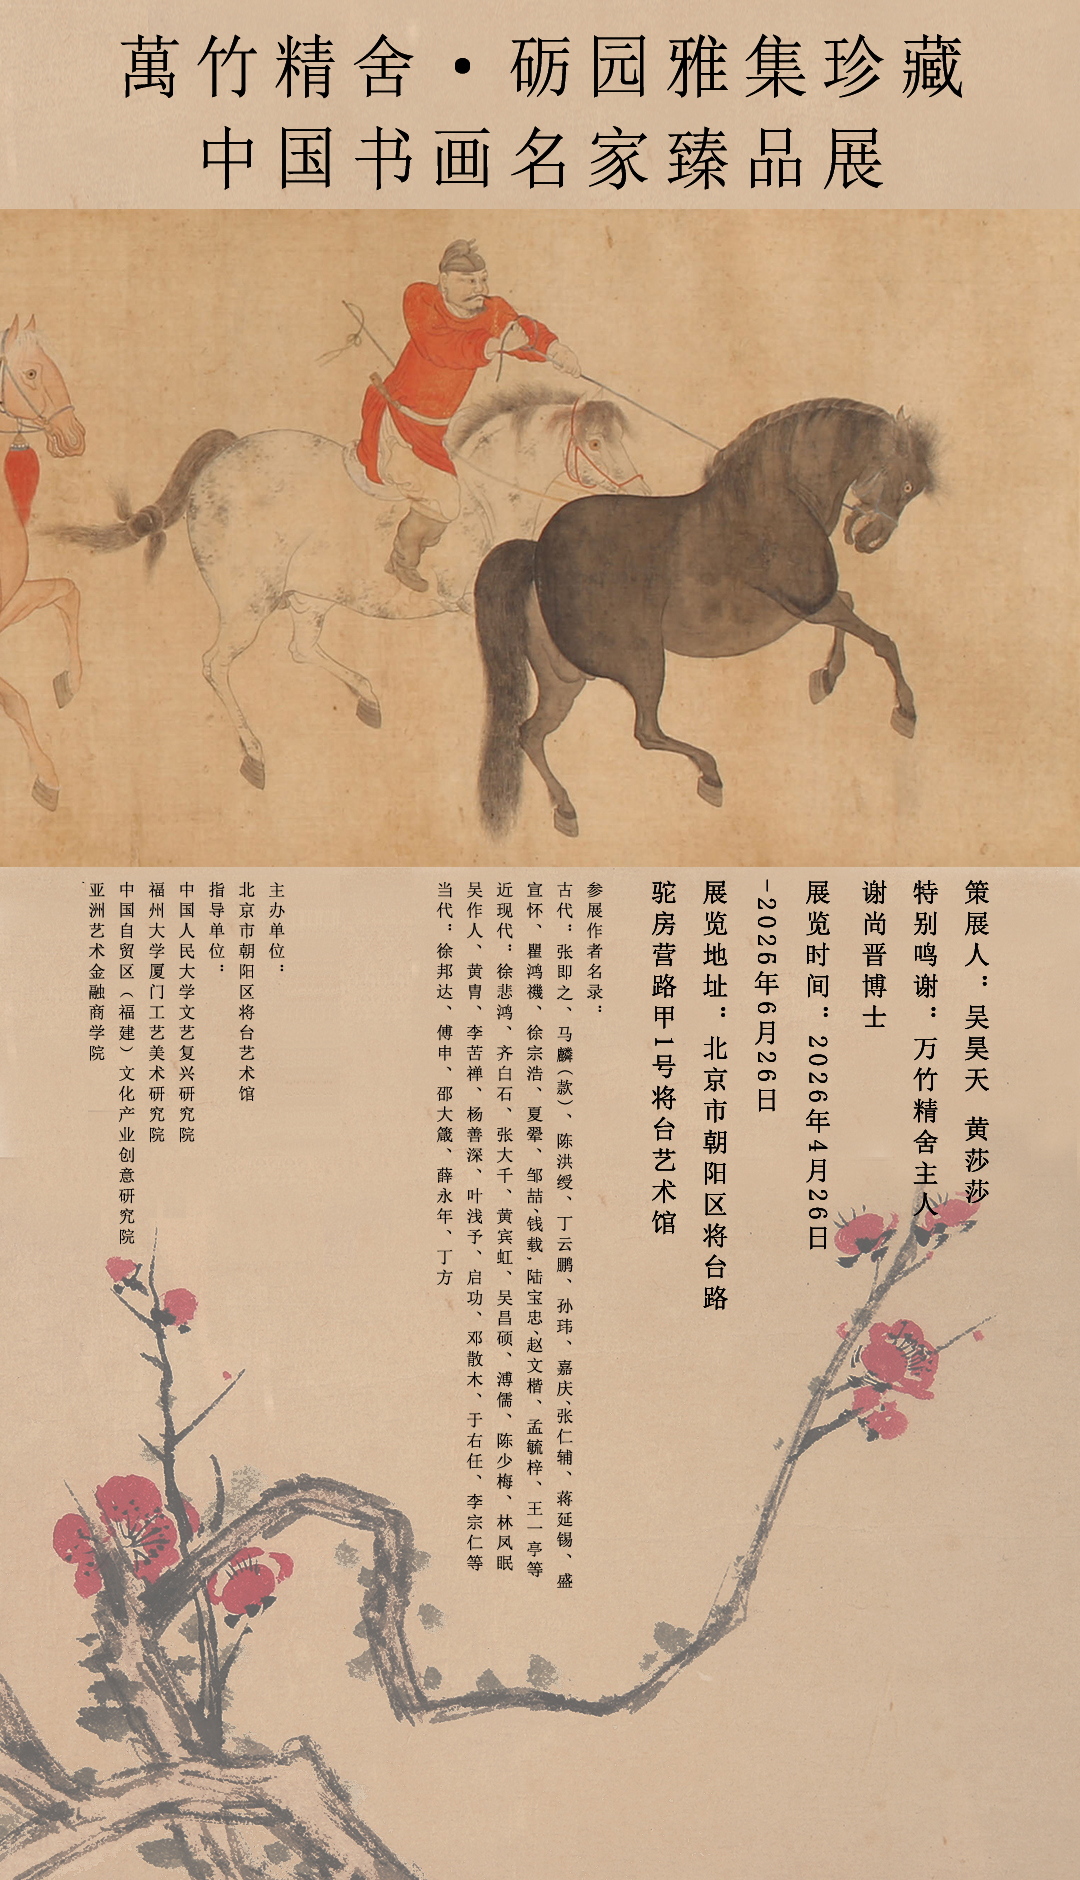 萬竹精舍·砺园雅集珍藏
中国书画名家臻品展
策展人：吴昊天 黄莎莎
特别鸣谢：万竹精舍主人
谢尚晋博士
展览时间：2026年4月26日
-2026年6月26日
展览地址：北京市朝阳区将台路
驼房营路甲1号将台艺术馆
参展作者名录：
古代：张即之、马麟(款)、陈洪绶、丁云鹏、孙玮、嘉庆、张仁辅、蒋延锡、盛
宣怀、瞿鸿禨、徐宗浩、夏翚、邹喆、钱载,陆宝忠、赵文楷、孟毓梓、王一亭等
近现代：徐悲鸿、齐白石、张大千、黄宾虹、吴昌硕、溥儒、陈少梅、林凤眠
吴作人、黄胄、李苦禅、杨善深、叶浅予、启功、邓散木、于右任、李宗仁等
当代：徐邦达、傅申、邵大箴、薛永年、丁方
主办单位：
北京市朝阳区将台艺术馆
指导单位：
中国人民大学文艺复兴研究院
福州大学厦门工艺美术研究院
中国自贸区（福建）文化产业创意研究院
亚洲艺术金融商学院